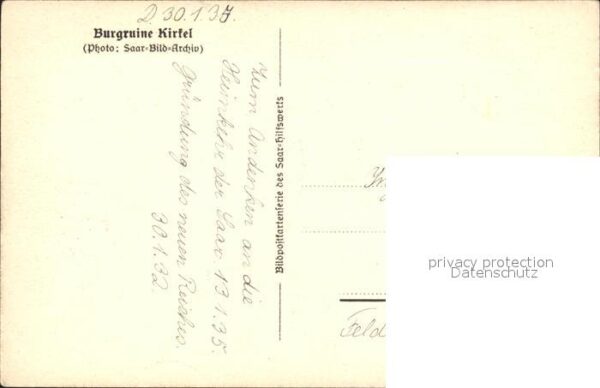 D. 30.1.37.
Burgruine Kirkel
(Photo: Saar-Bild-Archiv)
Zum Andenken an die
Heimkehr der Saar 13.1.35.
Gründung des neuen Reiches.
30.1.32.
Bildpostkartenserie des Saar-Hilfswerks
privacy protection
Datenschutz
Feld